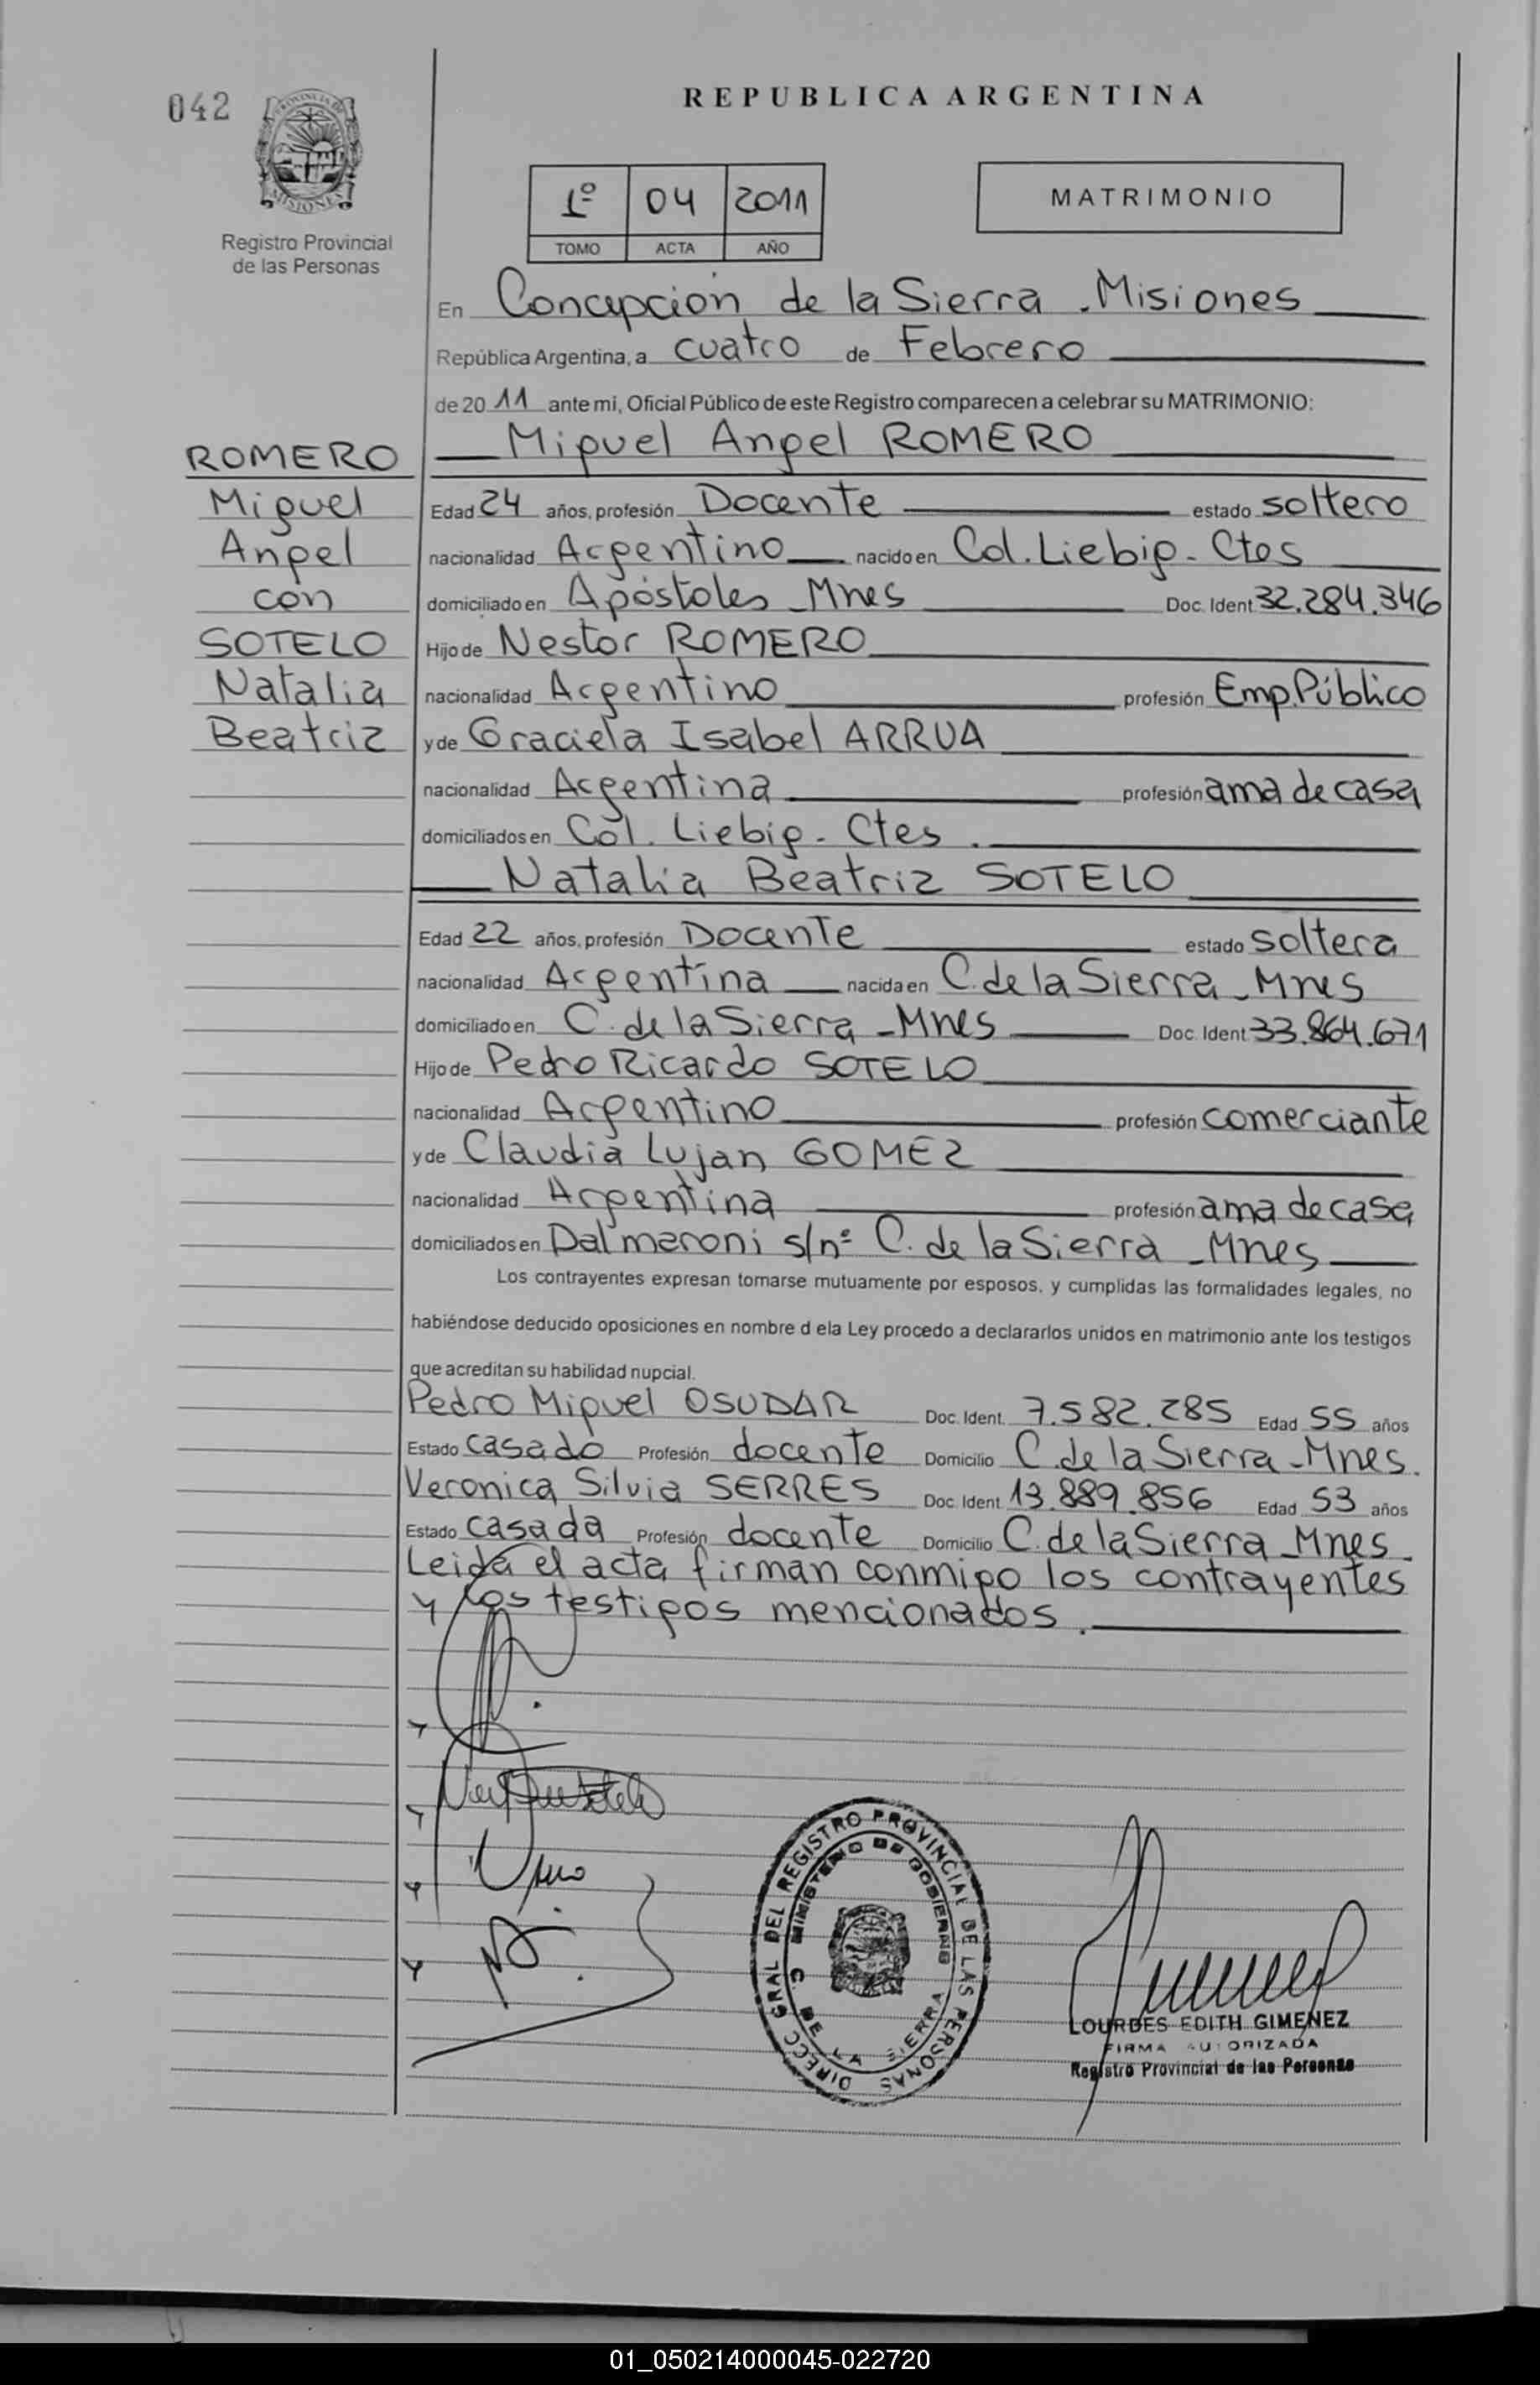 042
REPUBLICA ARGENTINA
PROVINCIA DE
MISIONES
Registro Provincial
de las Personas
1º 04 2011
TOMO ACTA AÑO
MATRIMONIO
En Concepción de la Sierra - Misiones
República Argentina, a cuatro de Febrero
de 20 11 ante mi, Oficial Público de este Registro comparecen a celebrar su MATRIMONIO:
Miguel Angel ROMERO
ROMERO
Miguel
Angel
con
SOTELO
Natalia
Beatriz
Edad 24 años, profesión Docente estado soltero
nacionalidad Argentino nacido en Col. Liebig - Ctes
domiciliado en Apóstoles - Mnes Doc. Ident 32.284.346
Hijo de Nestor ROMERO
nacionalidad Argentino profesión Emp. Público
y de Graciela Isabel ARRUA
nacionalidad Argentina profesión ama de casa
domiciliados en Col. Liebig - Ctes .
Natalia Beatriz SOTELO
Edad 22 años, profesión Docente estado soltera
nacionalidad Argentina nacida en C. de la Sierra - Mnes
domiciliado en C. de la Sierra - Mnes Doc. Ident 33.864.671
Hijo de Pedro Ricardo SOTELO
nacionalidad Argentino profesión comerciante
y de Claudia Lujan GOMEZ
nacionalidad Argentina profesión ama de casa
domiciliados en Dalmeroni s/nº C. de la Sierra - Mnes
Los contrayentes expresan tomarse mutuamente por esposos, y cumplidas las formalidades legales, no
habiéndose deducido oposiciones en nombre d ela Ley procedo a declararlos unidos en matrimonio ante los testigos
que acreditan su habilidad nupcial.
Pedro Miguel OSUDAR Doc. Ident. 7.582.285 Edad 55 años
Estado casado Profesión docente Domicilio C. de la Sierra - Mnes.
Veronica Silvia SERRES Doc. Ident 13.889.856 Edad 53 años
Estado casada Profesión docente Domicilio C. de la Sierra - Mnes.
Leida el acta firman conmigo los contrayentes
y los testigos mencionados.
DIRECC GRAL DEL REGISTRO PROVINCIAL DE LAS PERSONAS
MINISTERIO DE GOBIERNO
C. DE LA SIERRA
LOURDES EDITH GIMENEZ
FIRMA AUTORIZADA
Registro Provincial de las Personas
01_050214000045-022720